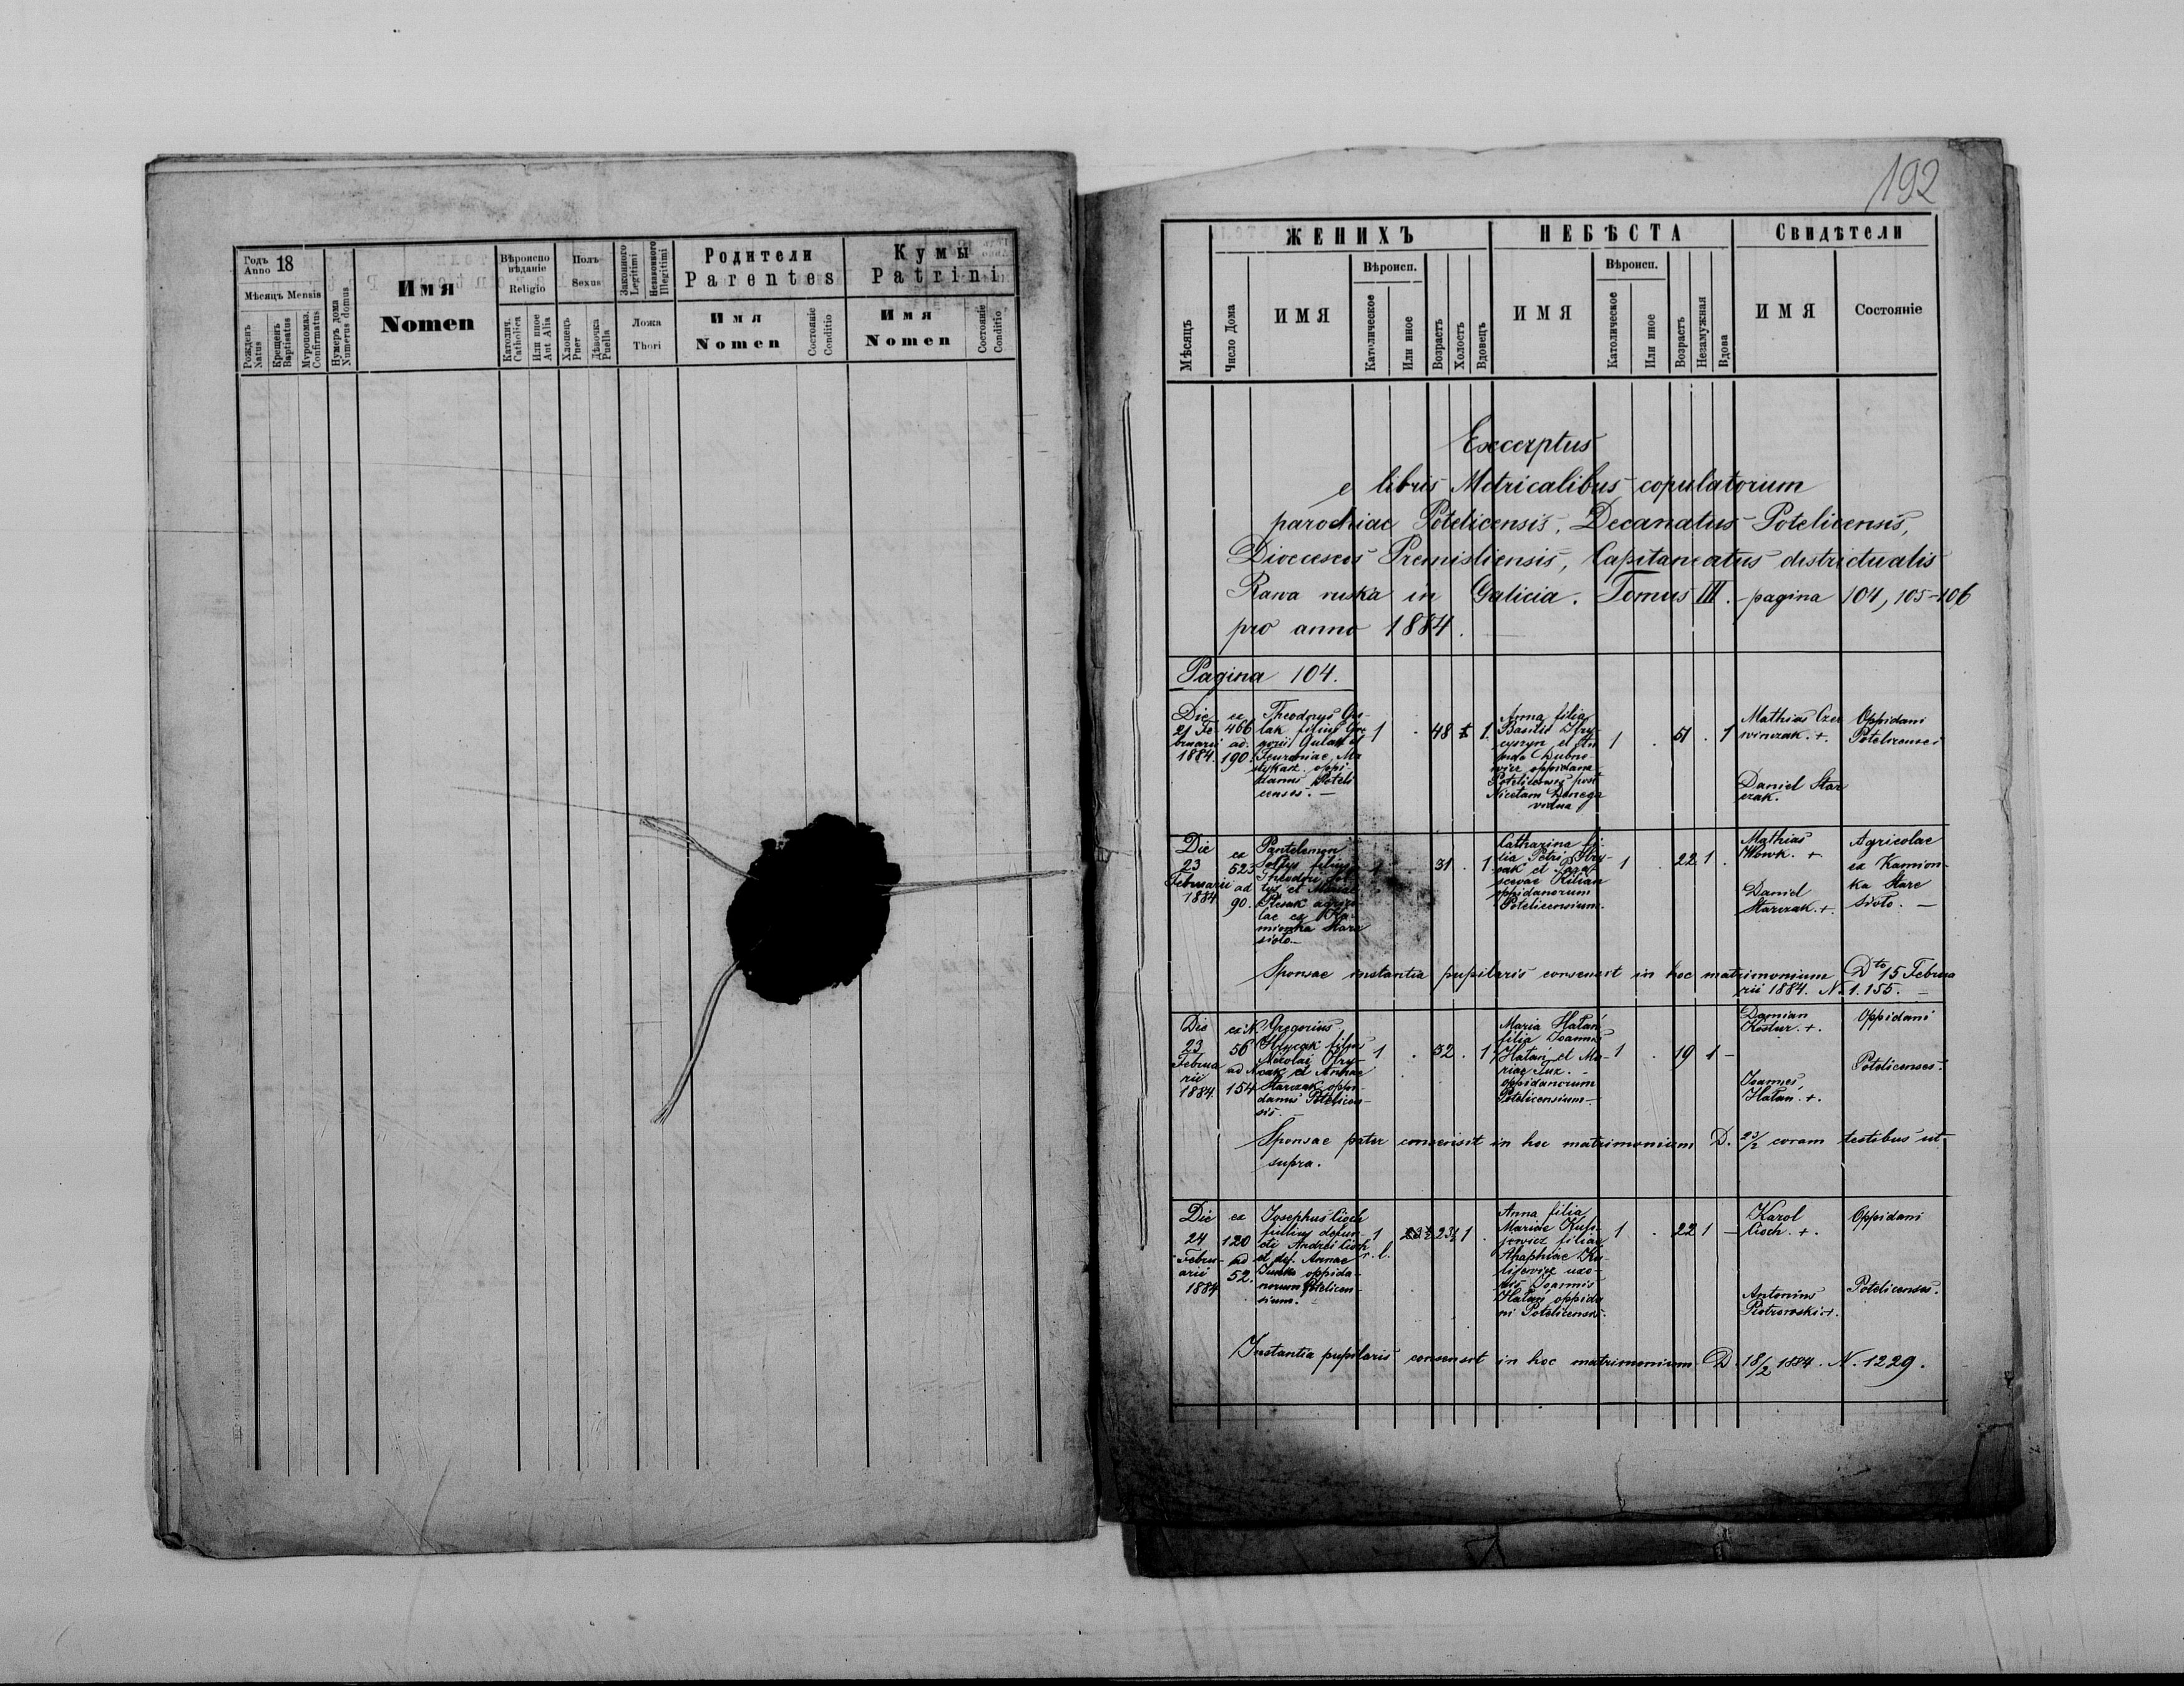 Годъ Anno 18
Мѣсяцъ Mensis
Рожденъ Natus
Крещенъ Baptisatus
Мѵропомаз. Confirmatus
Нумеръ дома Numerus domus
Имя
Nomen
Вѣроиспо
вѣданіе
Religio
Католич. Catholica
Или иное Aut Alia
Полъ
Sexus
Хлопецъ Puer
Дѣвочка Puella
Законного Legitimi
Незаконного Illegitimi
Ложа
Thori
Родители
Parentes
Имя
Nomen
Состояніе Conditio
Кумы
Patrini
Имя
Nomen
Состояніе Conditio
192
Мѣсяцъ
Число Дома
ЖЕНИХЪ
ИМЯ
Вѣроисп.
Католическое
Или иное
Возрастъ
Холостъ
Вдовецъ
НЕБѢСТА
ИМЯ
Вѣроисп.
Католическое
Или иное
Возрастъ
Незамужная
Вдова
Свидѣтели
ИМЯ
Состояніе
Excerptus
e libris Metricalibus copulatorum
parochiae Potelicensis, Decanatus Potelicensis,
Dioeceseos Premisliensis, Capitaneatus districtualis
Rawa ruska in Galicia. Tomus III. pagina 104, 105-106
pro anno 1884.
Pagina 104.
Die
21 Fe-
bruarii
1884.
ex
466
ad
190.
Theodorus Gu-
lak filius Gre
gorii Gulak et
oppi
danus Poteli
censes.-
1 . 48 1.
Anna filia
Basilii Hry-
cyszyn et
oppidana
Potelicensis post
Nicetam
vidua
1 . 51 . 1
Mathias Czer
winczak. +.
Daniel Star
czak.
Oppidani
Potelicenses
Die
23
Februarii
1884
ex
523
ad
90.
Pantelemon
Soltys filius
Theodori Sol
tys et Mariae
agrico
lae ex Ka-
mionka Stare
sioło.-
1 31 . 1
Catharina fi-
lia Petri Hry-
cak et Paras
cevae Kilian
oppidanorum
Potelicensium.
1 . 22 1 .
Mathias
Wowk. +
Daniel
Starczak. +.
Agricolae
ex Kamion-
ka Stare
sioło. -
Sponsae instantia pupilaris consensit in hoc matrimonium Dto 15 Februa
rii 1884. N. 1.155. -
Die
23
Februa
rii
1884.
ex N.
56
ad N.
154
Gregorius
Hrycak filius
Nicolai Hry-
cak et Annae
Starczak oppi-
danus Potelicen-
sis. -
1 . 32 . 1
Maria Hałań
filia Joannis
Hałań et Ma-
riae Tuz. -
oppidanorum
Potelicensium.-
1 . 19 1 -
Damian
Kostur. +.
Joannes
Hałań. +.
Oppidani
Potelicenses.
Sponsae pater consensit in hoc matrimonium D. 23/2 coram testibus ut
supra.
Die
24
Febru-
arii
1884
ex
120
ad
52.
Josephus Cioch
filius defun-
cti Andrei Cioch
et def. Annae
oppida-
norum Potelicen-
sium. -
1
r. l.
23½ 1 .
Anna filia
Mariae
filiae
Ahaphiae
uxo-
ris Joannis
Hałań oppida
ni Potelicensis.
1 . 22 1 -
Karol
Cioch. +.
Antonius
Piotrowski +.
Oppidani
Potelicenses.
Instantia pupilaris consensit in hoc matrimonium D. 18/2 1884. N. 1229.